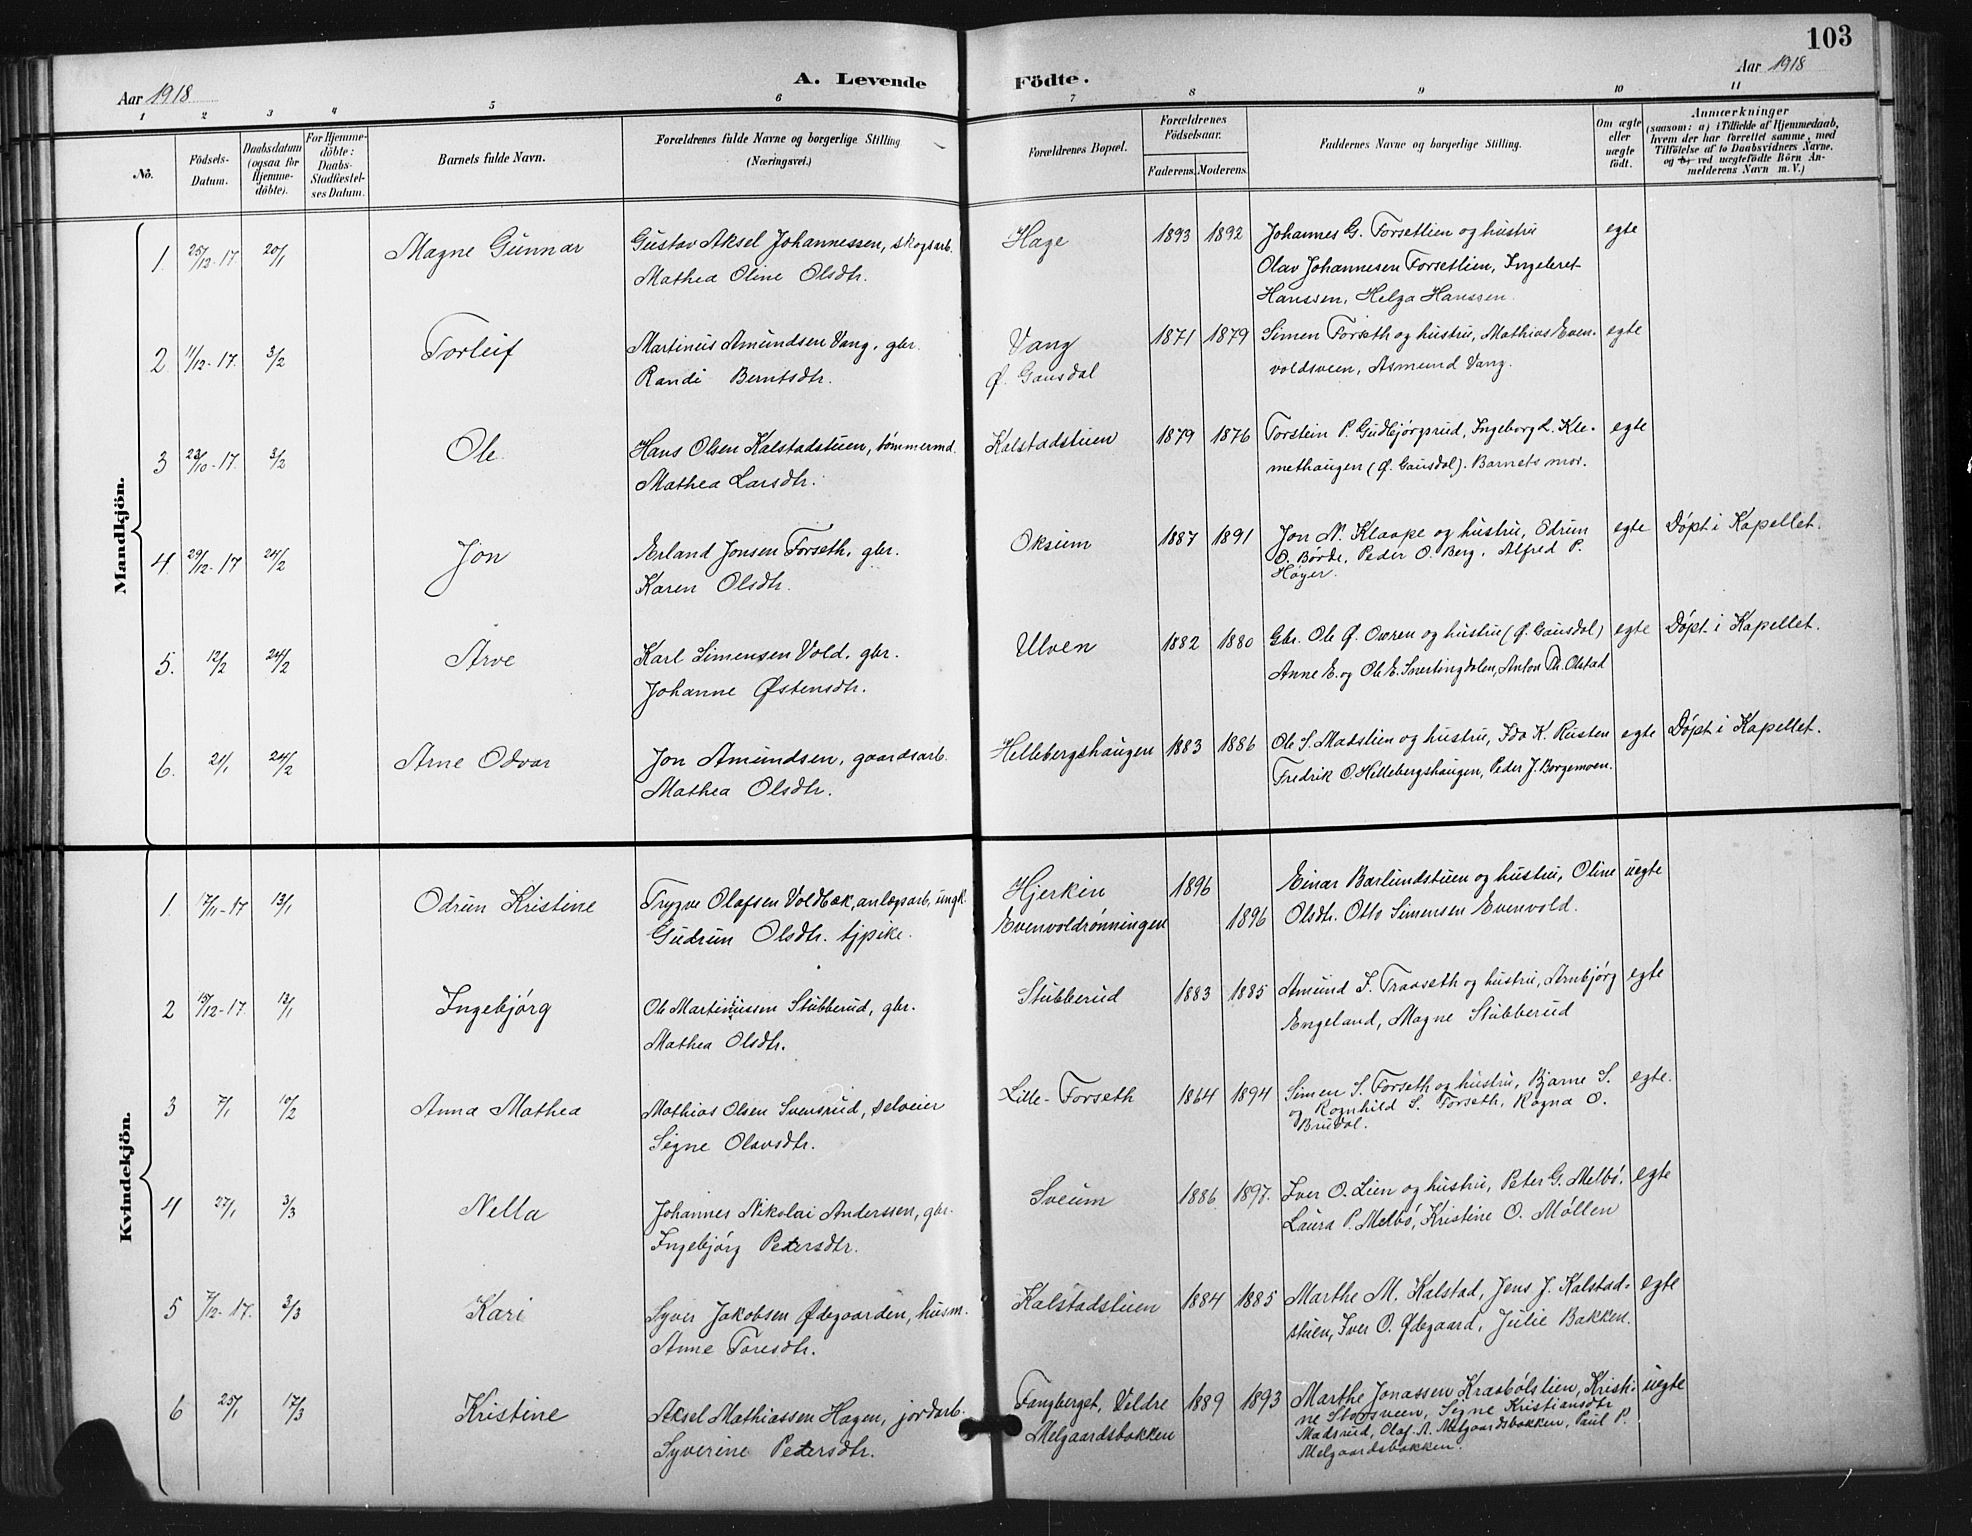 103
Aar 1918
A. Levende
Födte.
Aar 1918
1 2 3 4 5 6 7 8 9 10 11
No.
Födsels-
Datum.
Daabsdatum
(ogsaa for
Hjemme-
döbte).
For Hjemme-
döbte:
Daabs-
Stadfæstel-
ses Datum.
Barnets fulde Navn.
Forældrenes fulde Navne og borgerlige Stilling
(Næringsvei.)
Forældrenes Bopæl.
Forældrenes
Födselsaar.
Faderens. Moderens.
Faddernes Navne og borgerlige Stilling.
Om ægte
eller
uægte
födt.
Anmærkninger
(saasom: a) i Tilfælde af Hjemmedaab,
hvem der har forrettet samme, med
Tilföielse af to Daabsvidners Navne.
og b) ved uægtefödte Börn An-
melderens Navn m. V.)
Mandkjön.
1. 25/12-17. 20/1 Magne Gunnar Gustav Aksel Johannessen, skogsarb. Hage 1893 1892 Johannes G. Forsetlien og hustru egte
Mathea Oline Olsdtr. Olav Johannesen Forsetlien, Ingeleret
Hanssen, Helga Hanssen.
2 11/12-17. 3/2 Torleif Martinus Amundsen Vang, gbr. Vang 1871 1879 Simen Forseth og hustru, Mathias Even- egte
Randi Berntsdtr. Ø. Gausdal voldsveen, Asmund Vang.
3 23/10-17. 3/2 Ole Hans Olsen Kalstadstuen, tömmermd. Kalstadstuen 1879 1876 Torstein P. Gudbjörgsrud, Ingeborg L. Kle- egte
Mathea Larsdtr. methaugen (Ø. Gausdal). Barnets mor.
4. 29/12-17 24/2 Jon Erland Jonsen Forseth, gbr. Oksum 1887 1891 Jon N. Klaape og hustru, Odrun egte Döpt i Kapellet.
Karen Olsdtr. O. Börde, Peder O. Berg, Alfred P.
Höyer.
5. 12/2 24/2 Arve Karl Simensen Vold, gbr. Ulven 1882 1880 Gbr. Ole Ø. Owren og hustru (Ø. Gausdal) egte Döpt i Kapellet.
Johanne Østensdtr. Anne E. og Ole E. Svertingdalen, Anton Th. Olstad
6. 21/1 24/2 Arne Odvar Jon Amundsen, gaardsarb. Hellebergshaugen 1883 1886 Ole S. Matslien og hustru, Ida K. Rusten egte Döpt i Kapellet.
Mathea Olsdtr. Fredrik O. Hellebergshaugen, Peder J. Borgemoen.
Kvindekjön.
1. 17/11-17 13/1 Odrun Kristine Trygve Olafsen Voldbæk, anlægsarb. ungk. Hjerkin 1896 Einar Barlundstuen og hustru, Oline uegte
Gudrun Olsdtr. tjpike. Evenvoldrønningen 1896 Olsdtr. Otto Simensen Evenvold.
2 15/12-17. 13/1 Ingebjörg Ole Martinussen Stubberud, gbr. Stubberud 1883 1885 Amund I. Traaseth og hustru, Arnbjörg egte
Mathea Olsdtr. Engeland, Magne Stubberud
3 7/1 10/2 Anna Mathea Mathias Olsen Svensrud, selveier Lille-Forseth 1864 1894 Simen S. Forseth og hustru, Bjarne S. egte.
Signe Olavsdtr. og Ragnhild S. Forseth, Ragna O.
Brudal.
4 27/1 3/3 Nella Johannes Nikolai Anderssen, gbr. Sveum 1886 1897. Iver O. Lien og hustru, Peter G. Melbö, egte
Ingebjörg Petersdtr. Laura P. Melbö, Kristine O. Möllen
5 7/12-17. 3/3 Kari Syver Jakobsen Ødegaarden, husm. Kalstadstuen 1884 1885 Marthe M. Kalstad, Jens J. Kalstad- egte
Anne Toresdtr. stuen, Iver O. Ødegaard, Julie Bakken.
6 25/1 17/3 Kristine Aksel Mathiassen Hagen, jordarb. Fangberget, Veldre 1889 1893 Marthe Jonassen Kraabölslien, Kristi- uegte
Syverine Petersdtr. Melgaardsbakken ne Signe Kristiansdtr
Madsrud, Olaf A. Melgaardsbakken, Paul P.
Melgaardsbakken.